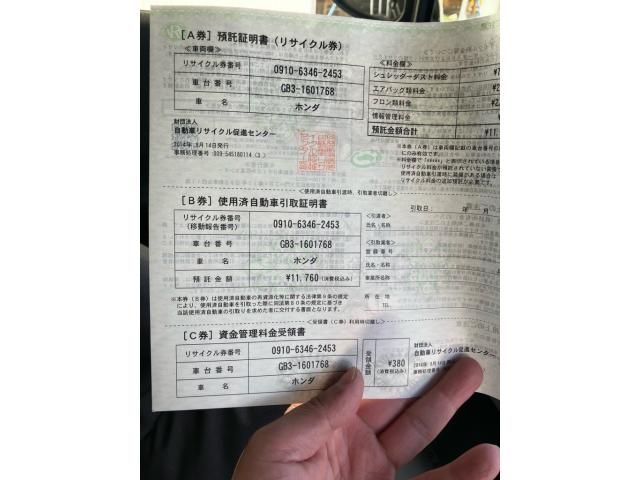 [A券] 預託証明書 (リサイクル券)
<車両欄>
リサイクル券番号 0910-6346-2453
車台番号 GB3-1601768
車名 ホンダ
<料金欄>
シュレッダーダスト料金
エアバッグ類料金
フロン類料金
情報管理料金
預託金額合計 ¥11,
財団法人
自動車リサイクル促進センター
2014年 3月14日発行
<使用済自動車引渡時、引取業者切離し>
[B券] 使用済自動車引取証明書
引取日: 年 月
リサイクル券番号
(移動報告番号) 0910-6346-2453
車台番号 GB3-1601768
車名 ホンダ
預託金額 ¥11,760(消費税込み)
<引渡者>
氏名・名称
<引取業者>
登録番号
氏名・名称
事業所名称
所在地
TEL
*本券(B券)は使用済自動車の再資源化等に関する法律第9条の規定
により、使用済自動車を引取った際に同法第80条の規定に基づき
当該使用済自動車の引取りを求めた者に交付する書面となります。
<受領書(C券)利用時切離し>
[C券] 資金管理料金受領書
リサイクル券番号 0910-6346-2453
車台番号 GB3-1601768
車名 ホンダ
受領金額 ¥380
(消費税込み)
財団法人
自動車リサイクル促進センター